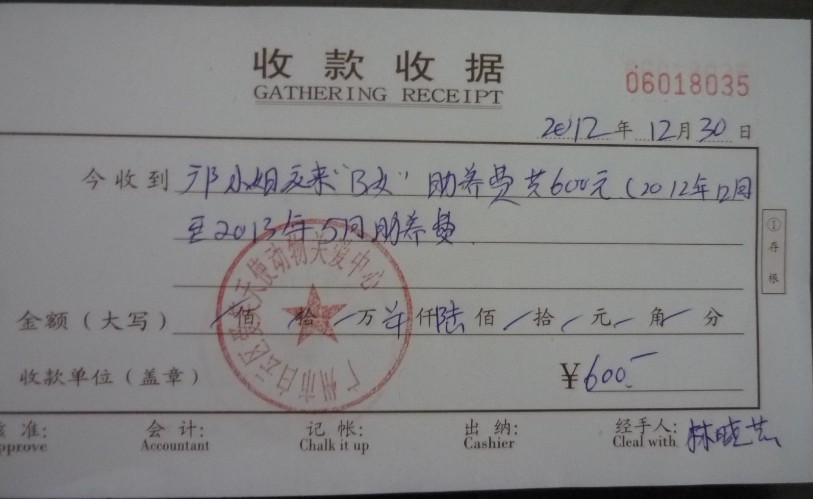 收款收据
GATHERING RECEIPT
06018035
2012年12月30日
今收到 邝小姐交来"B女"助养费共600元(2012年12月
至2013年5月助养费
①存根
金额(大写) 佰 拾 万 仟 陆 佰 拾 元 角 分
收款单位(盖章) ¥600
广州市白云区 天使动物关爱中心
准: 会计: 记帐: 出纳: 经手人: 林晓芸
pprove Accountant Chalk it up Cashier Cleal with